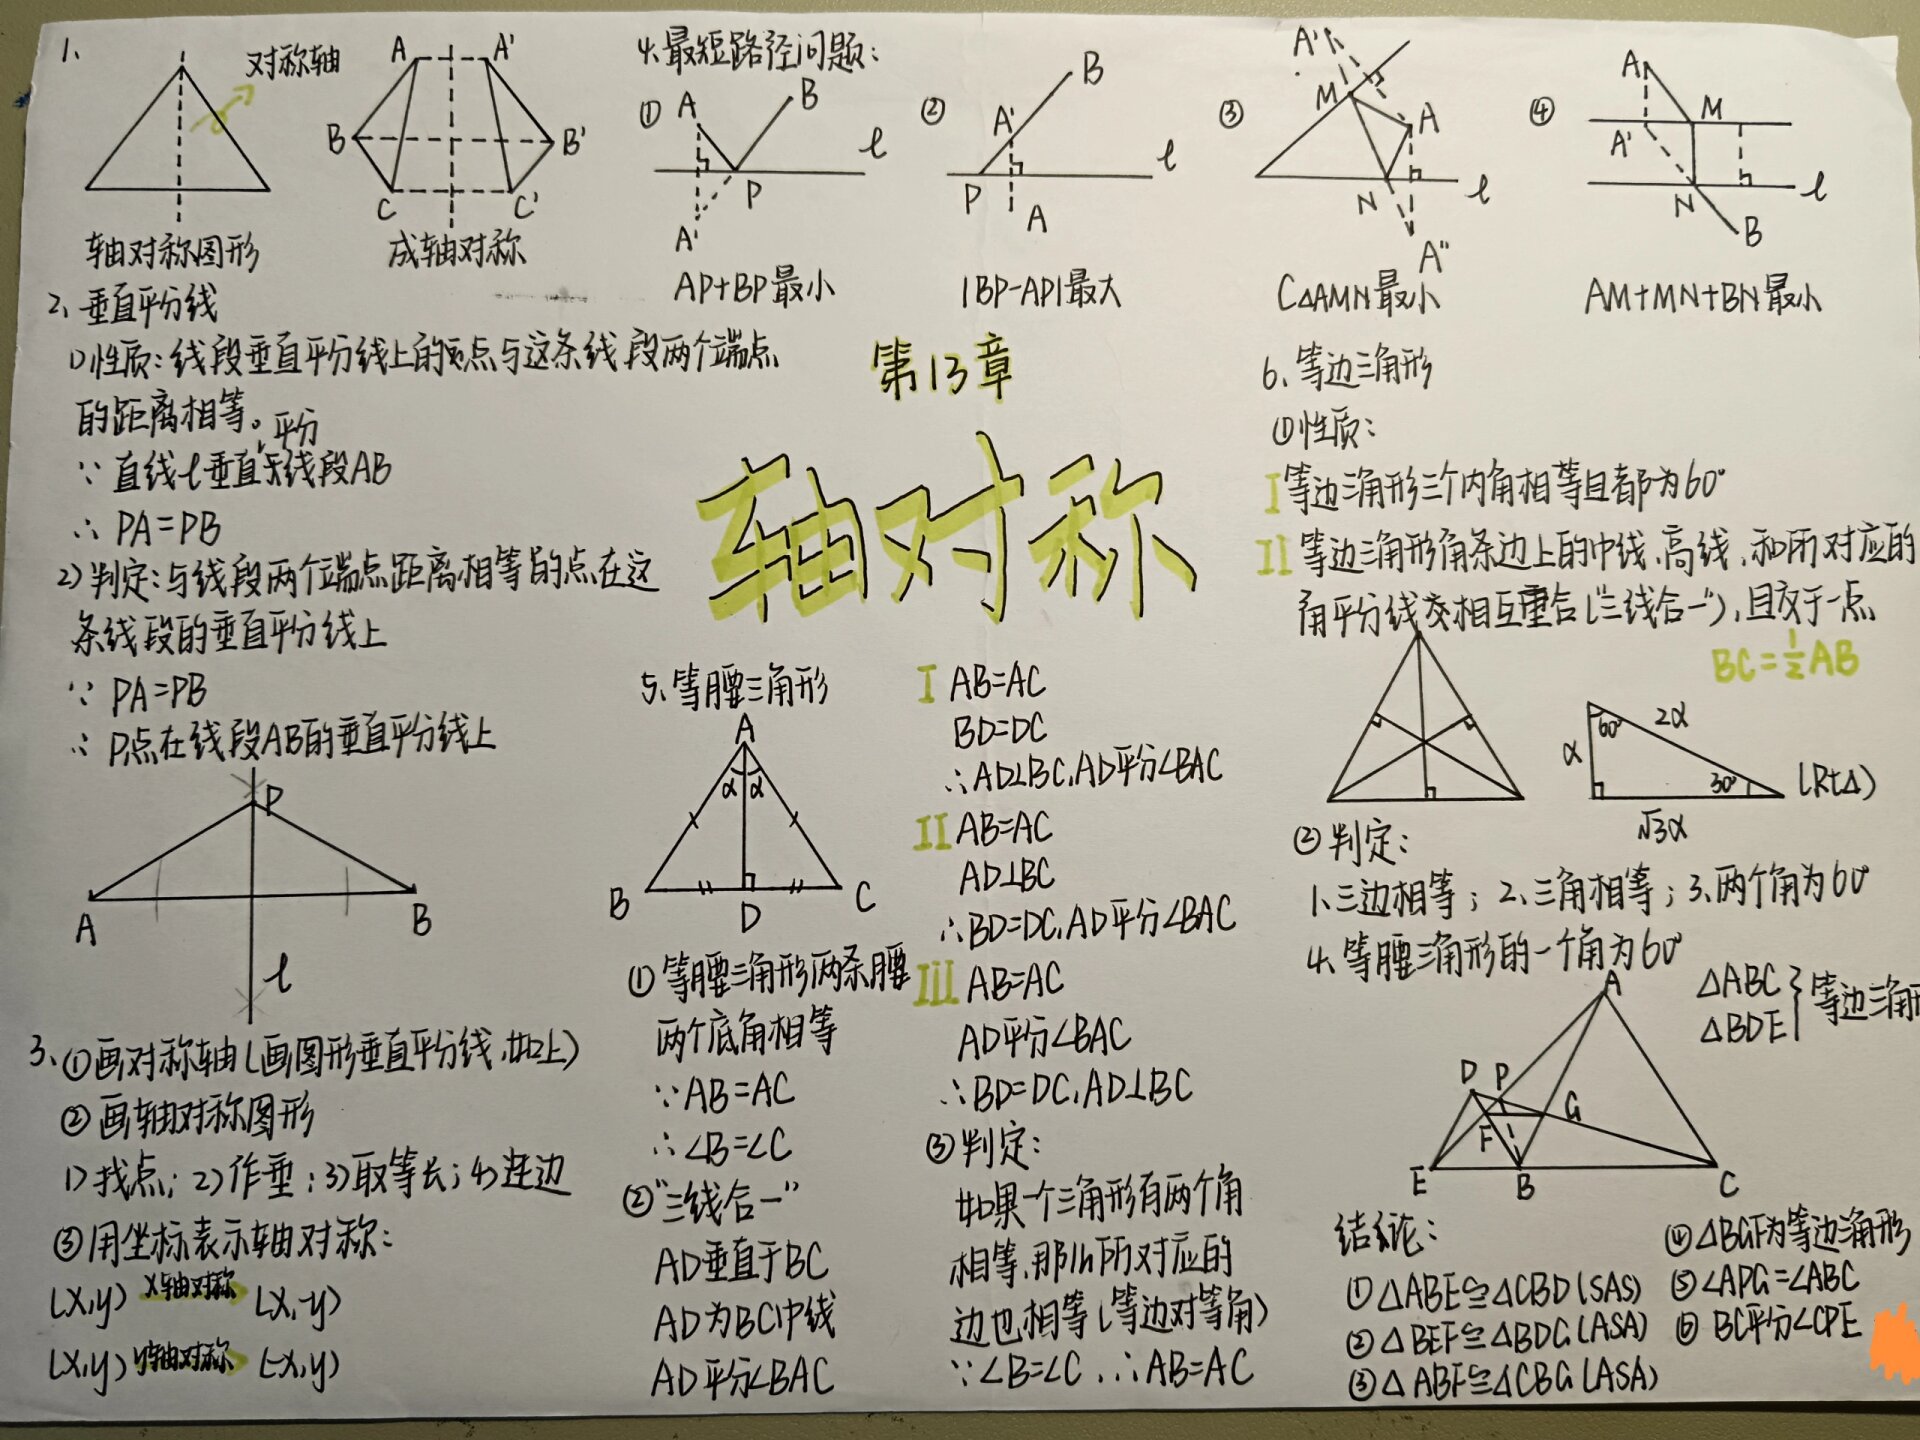 1、
对称轴
A A'
B B'
C C'
轴对称图形
成轴对称
2、垂直平分线
1)性质:线段垂直平分线上的点与这条线段两个端点
的距离相等。
平分
∵直线l垂直线段AB
∴PA=PB
2)判定:与线段两个端点距离相等的点在这
条线段的垂直平分线上
∵PA=PB
∴P点在线段AB的垂直平分线上
P
A B
l
3、①画对称轴(画图形垂直平分线,如上)
②画轴对称图形
1)找点;2)作垂;3)取等长;4)连边
③用坐标表示轴对称:
(x,y) x轴对称 (x,-y)
(x,y) y轴对称 (-x,y)
4.最短路径问题:
①
A B
l
P
A'
AP+BP最小
②
B
A'
l
P A
|BP-AP|最大
③
A'
M
A
N l
A"
C△AMN最小
④
A
M
A'
l
N
B
AM+MN+BN最小
第13章
轴对称
5、等腰三角形
A
α α
B D C
①等腰三角形两条腰
两个底角相等
∵AB=AC
∴∠B=∠C
②"三线合一"
AD垂直于BC
AD为BC中线
AD平分∠BAC
I AB=AC
BD=DC
∴AD⊥BC,AD平分∠BAC
II AB=AC
AD⊥BC
∴BD=DC,AD平分∠BAC
III AB=AC
AD平分∠BAC
∴BD=DC,AD⊥BC
③判定:
如果一个三角形有两个角
相等,那么所对应的
边也相等(等边对等角)
∵∠B=∠C,∴AB=AC
6、等边三角形
①性质:
I 等边三角形三个内角相等且都为60°
II 等边三角形角条边上的中线、高线、和所对应的
角平分线交相互重合("三线合一"),且交于一点
BC=½AB
60° 2α
α
30° (Rt△)
√3α
②判定:
1、三边相等;2、三角相等;3、两个角为60°
4、等腰三角形的一个角为60°
△ABC
△BDE
等边三角形
A
D P
G
F
E B C
结论:
①△ABE≌△CBD(SAS)
②△BEF≌△BDG(ASA)
③△ABF≌△CBG(ASA)
④△BGF为等边三角形
⑤∠APG=∠ABC
⑥BC平分∠CPE